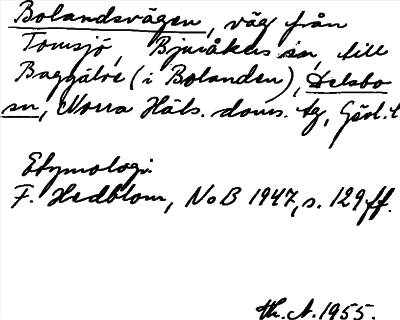 Bolandsvägen, väg från
Tomsjö, Bjuråkers sn, till
Baggälve (i Bolanden), Delsbo
sn, Norra Häls. doms. tg, Gävl. l
Etymologi.
F. Hedblom, NoB 1947, s. 129 ff.
th. A. 1955.